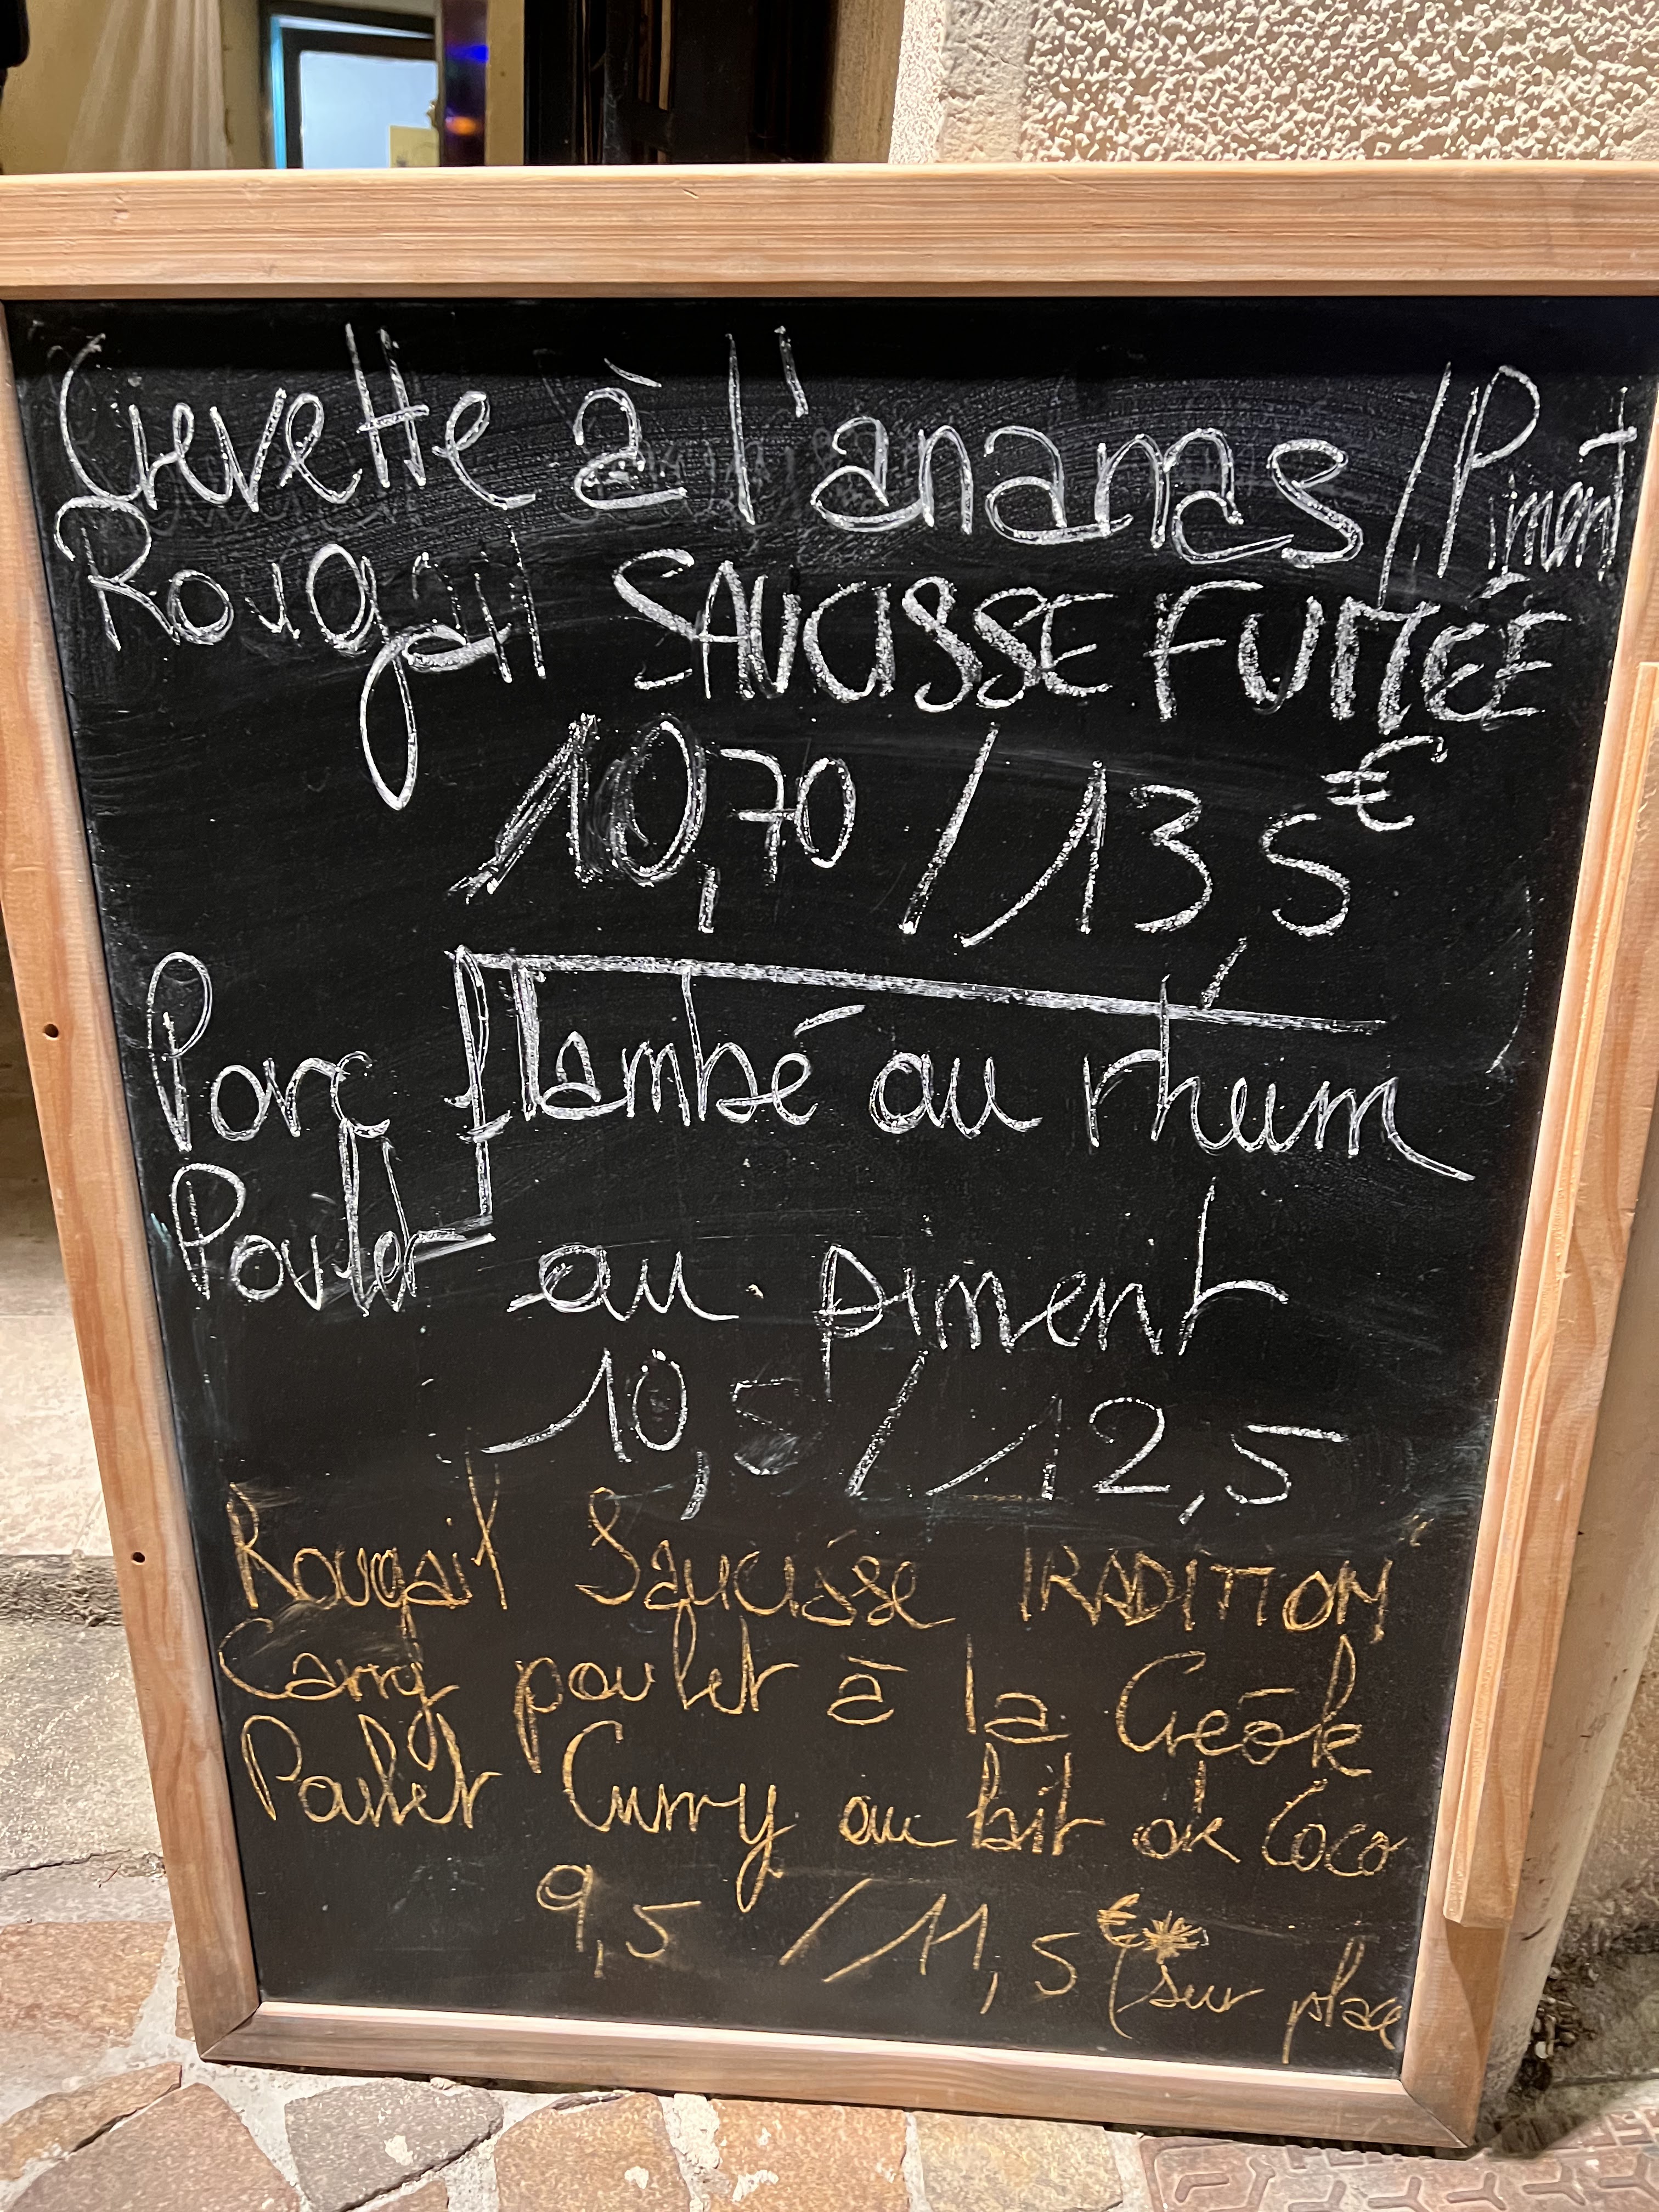 Crevette à l'ananas / Piment
Rougail SAUCISSE FUMÉE
10,70 / 13,5€
Porc flambé au rhum
Poulet au piment
10,5 / 12,5
Rougail Saucisse TRADITION"
Carry poulet à la Créole
Poulet Curry au lait de Coco
9,5 / 11,5€* (sur place